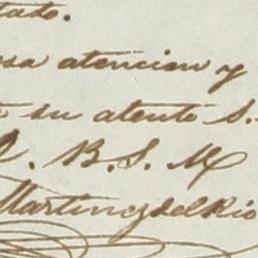 tado.
sa atencion y
su atento S.
Q. B. S. M
Martinez del Rio